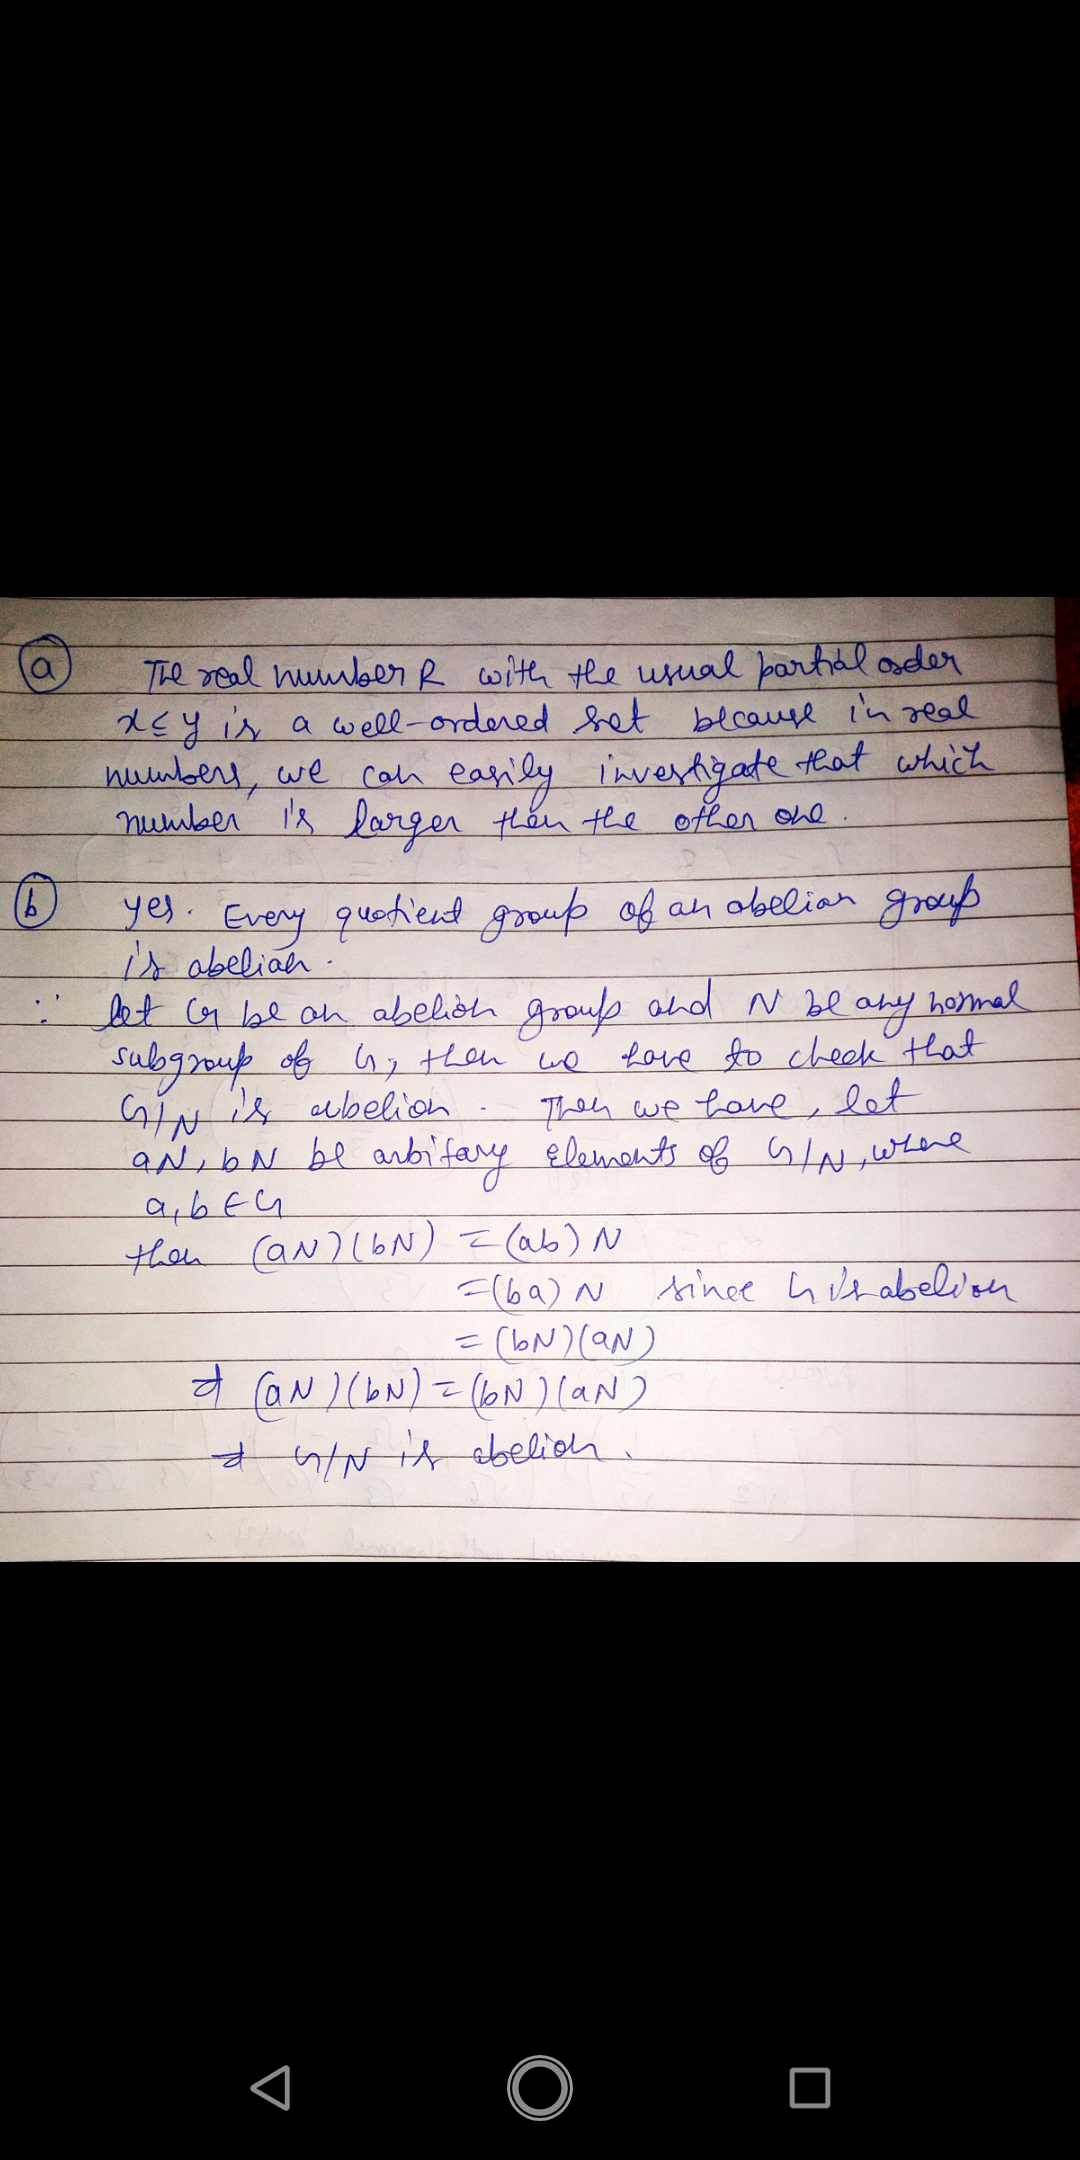 (a) The real number R with the usual partial order
x ≤ y is a well-ordered set because in real
numbers, we can easily investigate that which
number is larger then the other one.
(b) yes. Every quotient group of an abelian group
is abelian.
∵ let G be an abelian group and N be any normal
subgroup of G, then we have to check that
G/N is abelian. Then we have, let
aN, bN be arbitary elements of G/N, where
a, b ∈ G
then (aN)(bN) = (ab)N
= (ba)N since G is abelian
= (bN)(aN)
⇒ (aN)(bN) = (bN)(aN)
⇒ G/N is abelian.